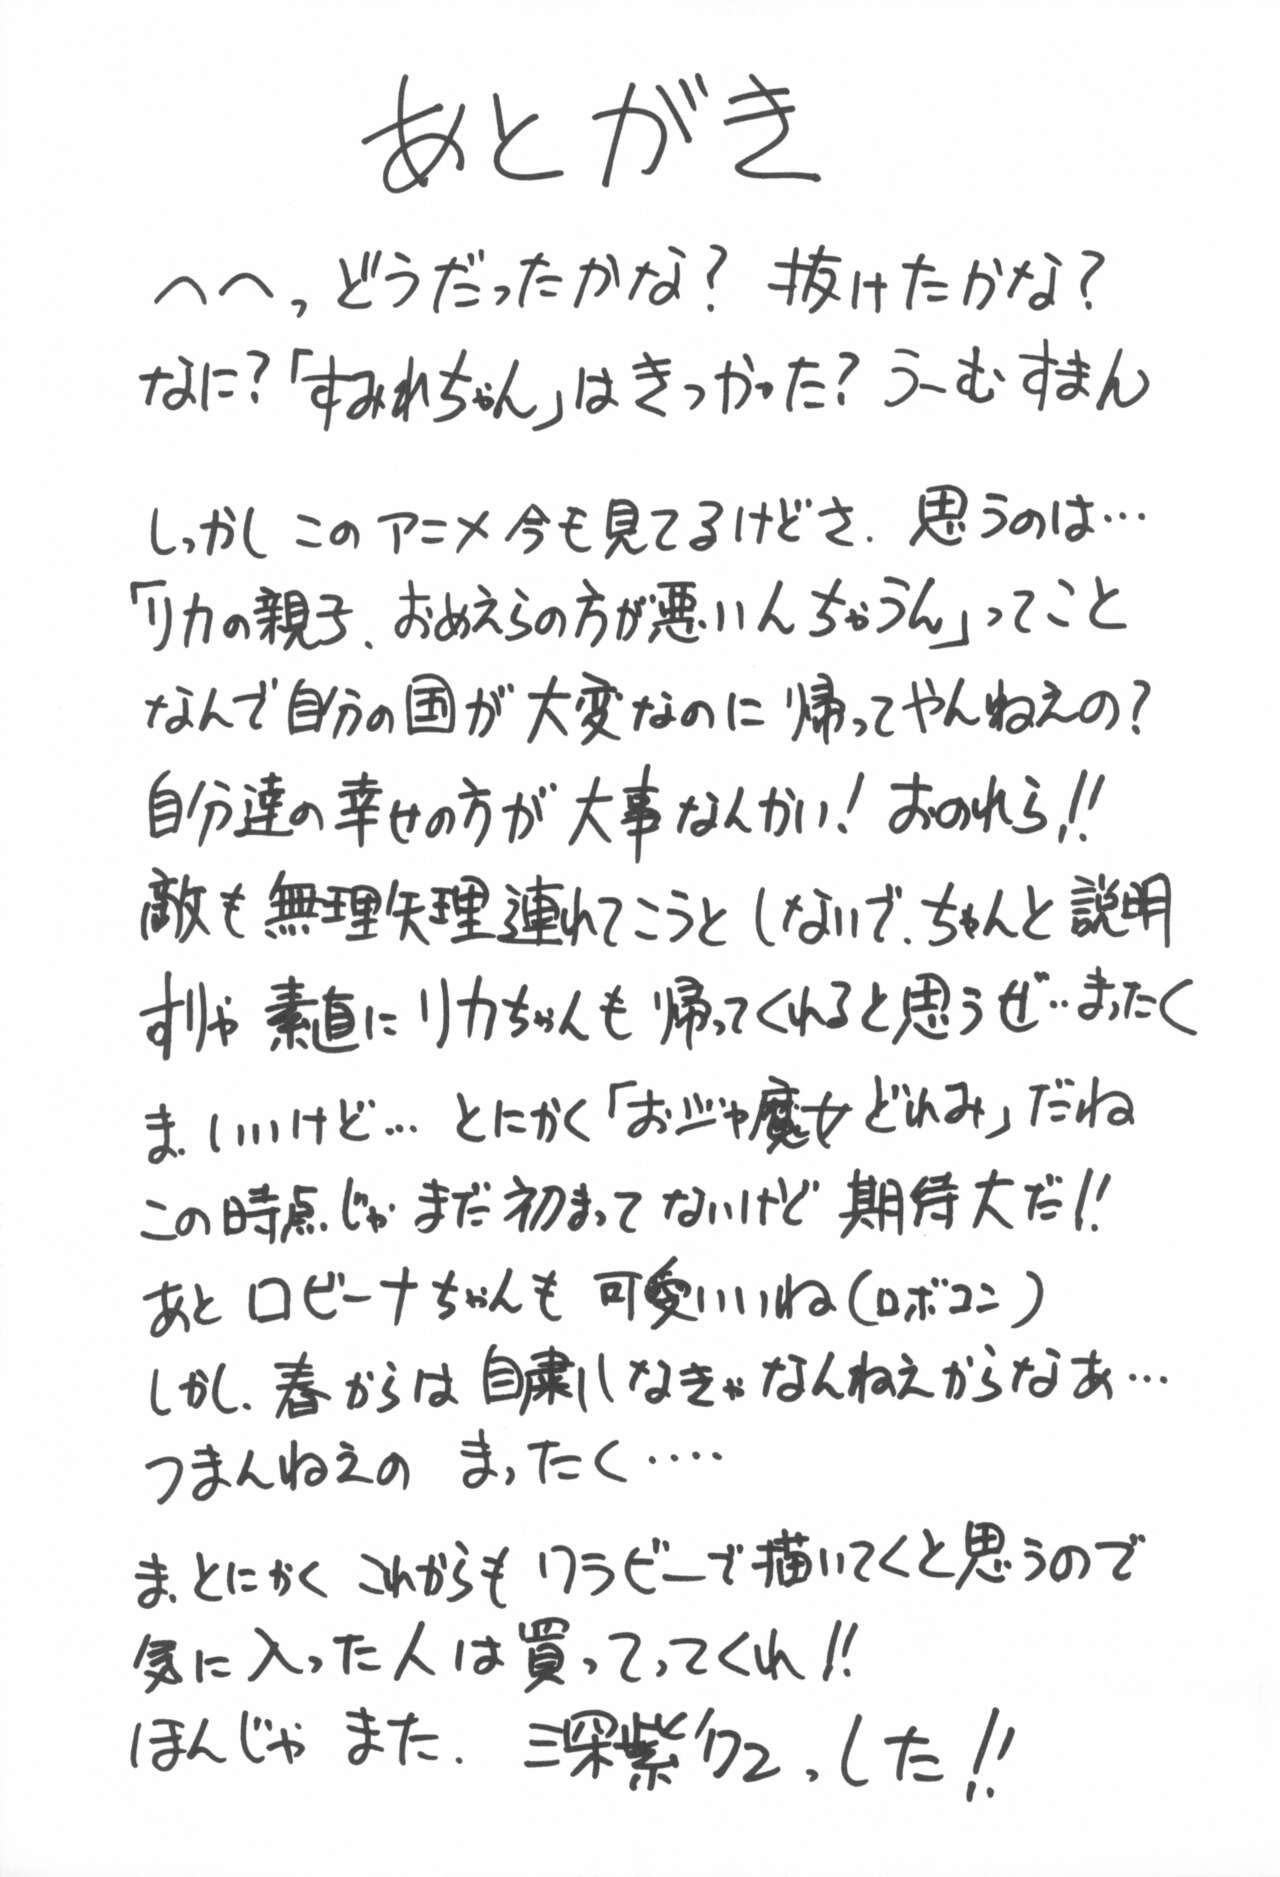 あとがき
へへっ、どうだったかな？ 抜けたかな？
なに？「すみれちゃん」はきつかった？うーむすまん
しっかしこのアニメ今も見てるけどさ、思うのは…
「リカの親子、おめえらの方が悪いんちゃうん」ってこと
なんで自分の国が大変なのに帰ってやんねえの？
自分達の幸せの方が大事なんかい！おのれら!!
敵も無理矢理連れてこうとしないで、ちゃんと説明
すりゃ素直にリカちゃんも帰ってくれると思うぜ…まったく
ま、いいけど… とにかく「おジャ魔女どれみ」だね
この時点じゃまだ初まってないけど期待大だ!!
あとロビーナちゃんも可愛いいね（ロボコン）
しかし、春からは自粛しなきゃなんねえからなあ…
つまんねえの まったく‥‥
ま、とにかくこれからもワラビーで描いてくと思うので
気に入った人は買ってってくれ!!
ほんじゃまた、 っした!!